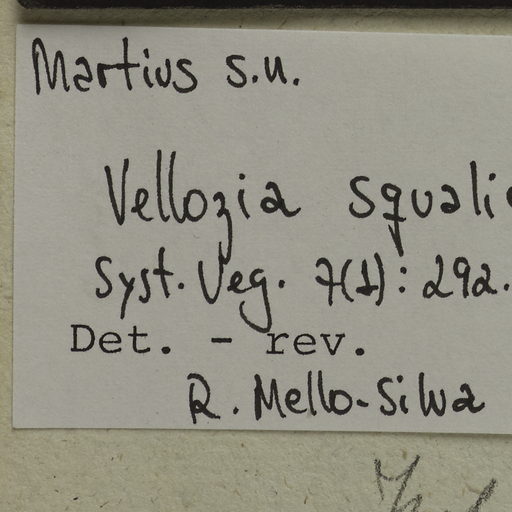 Martius s.n.
Vellozia squali
Syst. Veg. 7(1): 292.
Det. - rev.
R. Mello-Silva